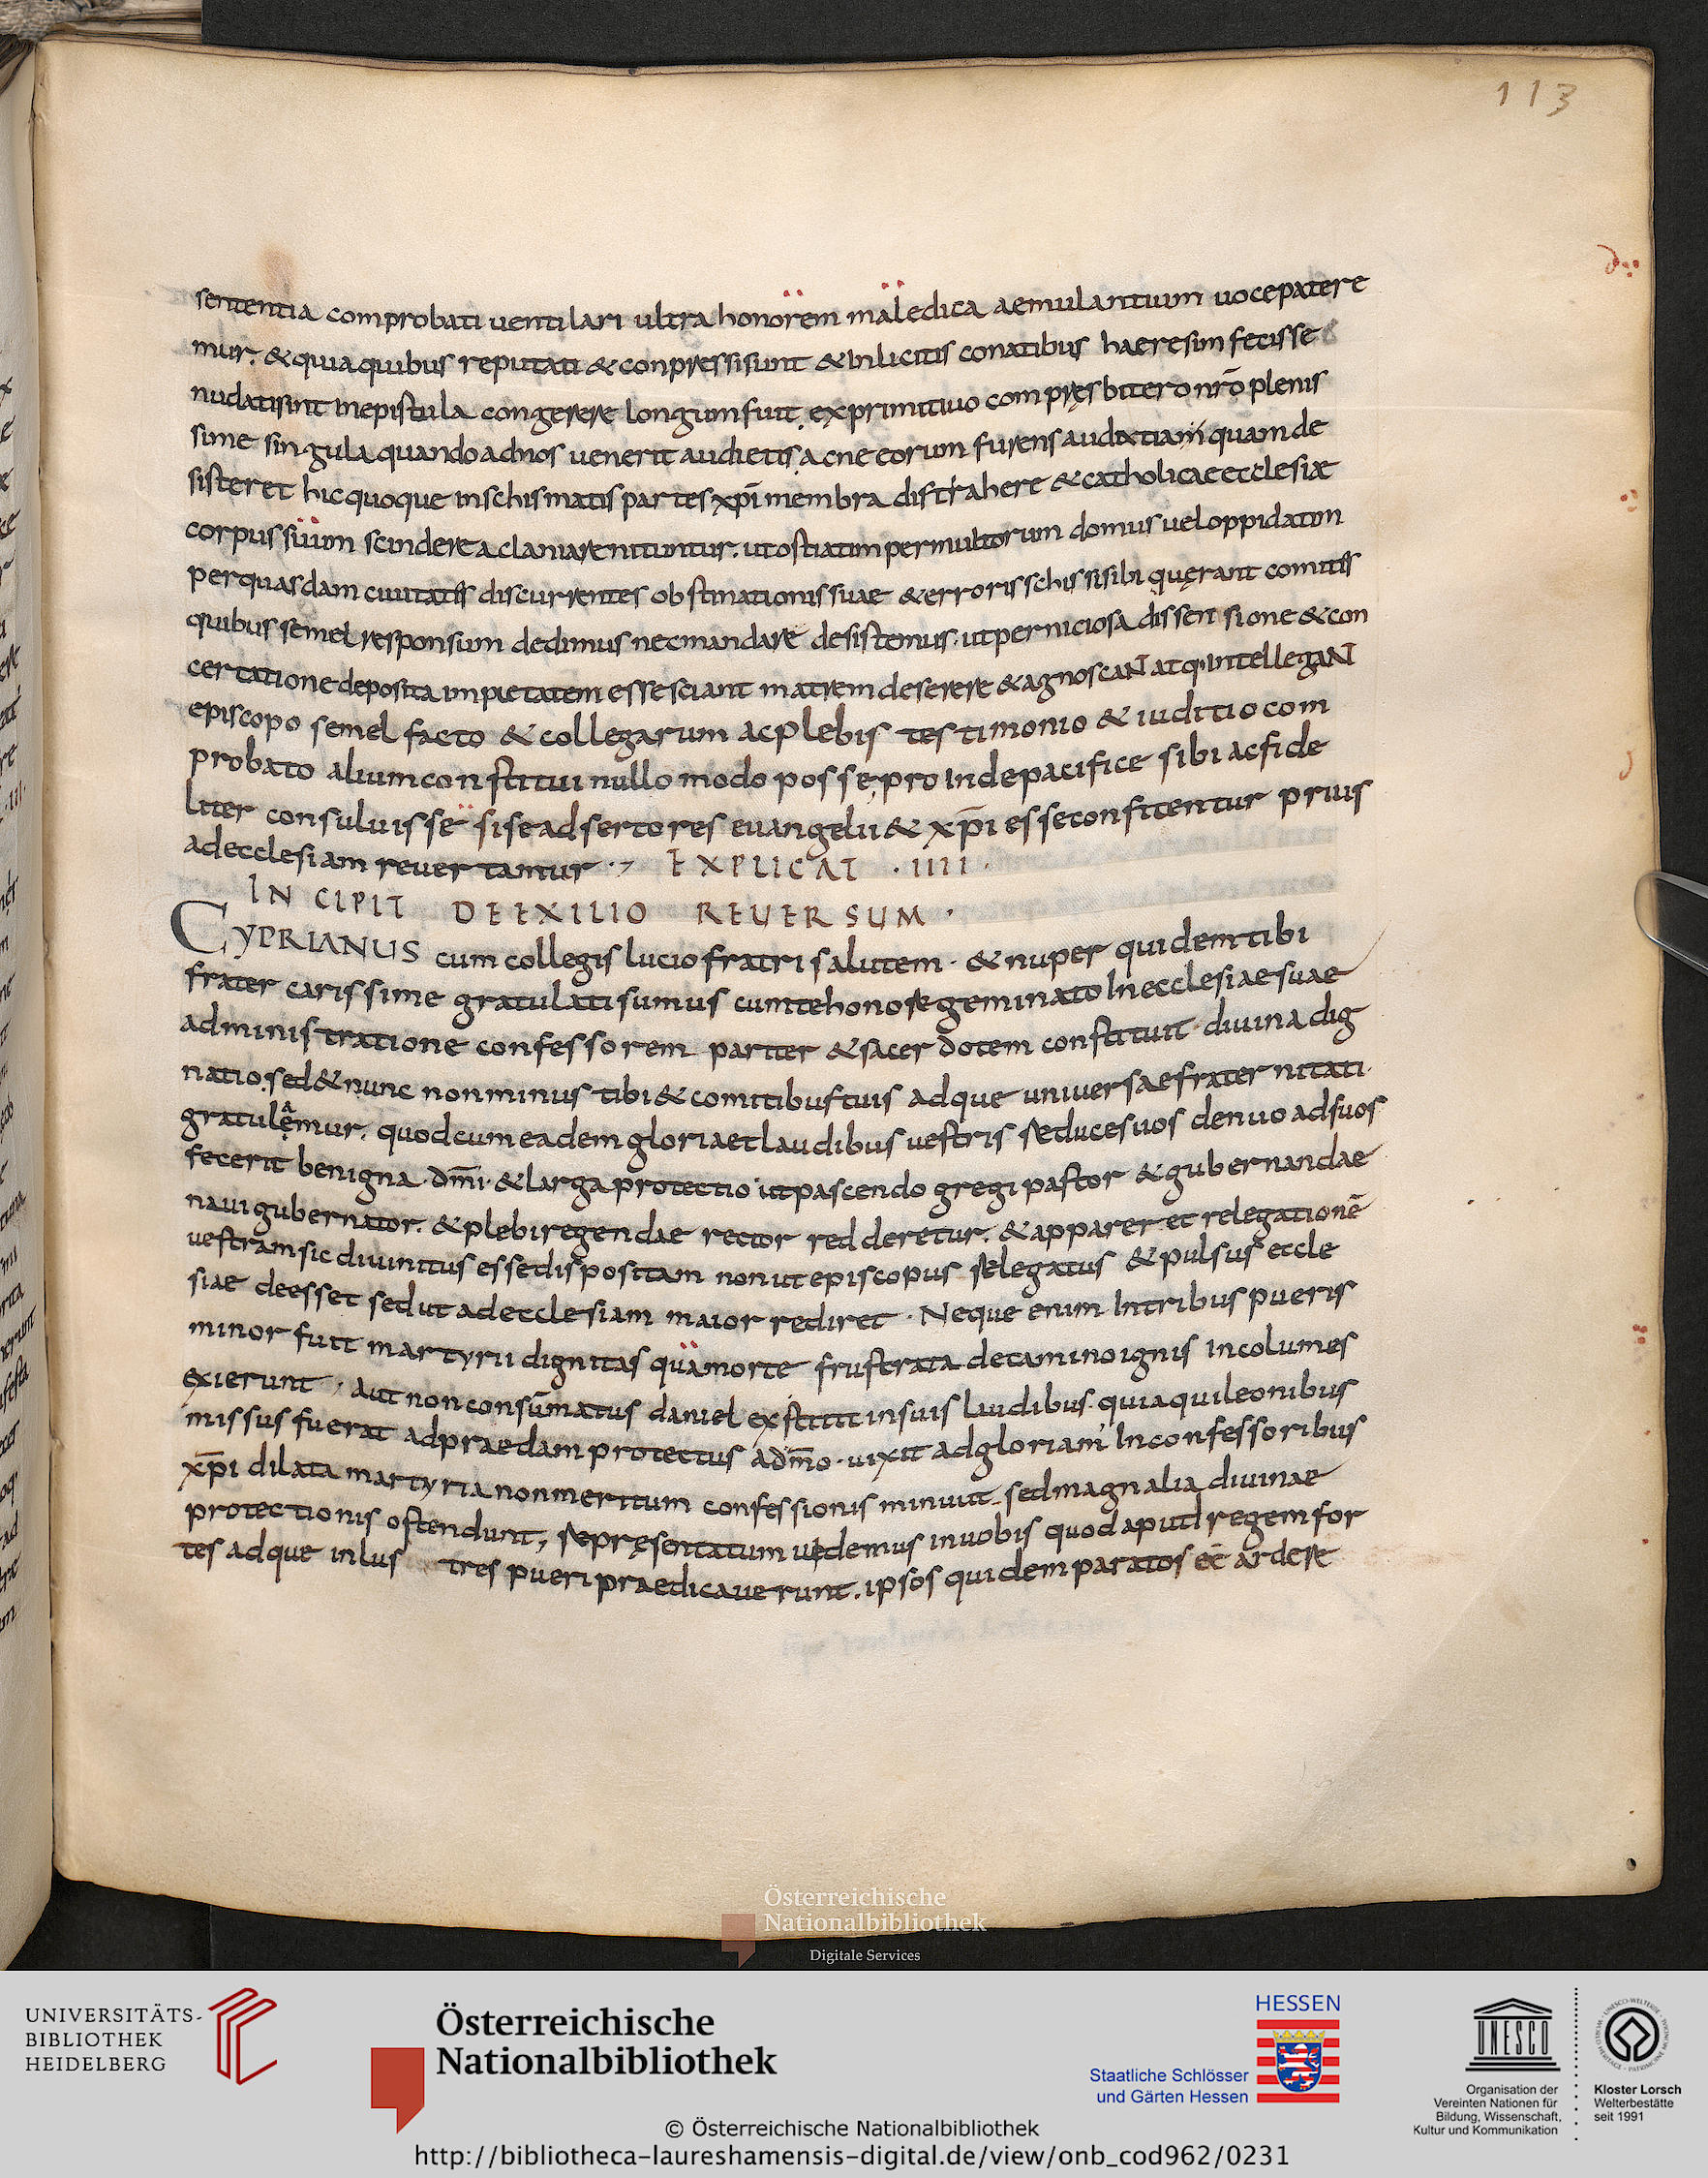 113
sententia comprobati uentilari ultra honorem maledica aemulantium uoce patere
mur. & quia quibus reputati & conpressi sunt & inlicitis conatibus haeresim fecisse
nudati sint in epistula congerere longum fuit. ex primitiuo compręsbitero nr̄o plenis
sime singula quando ad nos uenerit audietis. ac ne eorum furens audatiam quam de
sisteret hic quoque in schismatis partes xp̄i membra distrahere & catholicae ecclesiae
corpus suum scindere ac laniare nituntur. ut ostiatim per multorum domus uel oppidatim
per quasdam ciuitatis discurrentes obstinationis suae & erroris schissi sibi quęrant comitis
quibus semel responsum dedimus nec mandare desistemus. ut perniciosa dissensione & con
certatione deposita impietatem esse sciant matrem deserere & agnoscaNT atq; intellegaNT
episcopo semel facto & collegarum ac plebis testimonio & iuditio com
probato alium constitui nullo modo posse, proinde pacifice sibi ac fide
liter consuluisse si se adsertores euangelii & xp̄i esse confitentur prius
ad ecclesiam reuertantur. EXPLICAT .IIII.
INCIPIT DE EXILIO REUERSUM.
CYPRIANUS cum collegis lucio fratri salutem. & nuper quidem tibi
frater carissime gratulati sumus cum te honore geminato In ecclesiae suae
administratione confessorem pariter & sacerdotem constituit diuina dig
natio. sed & nunc non minus tibi & comitibus tuis adque uniuersae fraternitati.
gratulęamur. quod cum eadem gloria et laudibus uestris reduces uos denuo ad suos
fecerit benigna dm̄i. & larga protectio ut pascendo gregi pastor & gubernandae
naui gubernator. & plebi regendae rector redderetur. & appareret relegationē
uestram sic diuinitus esse dispositam non ut episcopus relegatus & pulsus eccle
siae deesset sed ut ad ecclesiam maior rediret. Neque enim In tribus pueris
minor fuit martyrii dignitas quamorte frustrata de camino ignis incolumes
exierunt, aut non consūmatus daniel exstitit in suis laudibus. quia qui leonibus
missus fuerat ad praedam protectus adm̄o. uixit ad gloriam In confessoribus
xp̄i dilata martyria non meritum confessionis minuit. sed magnalia diuinae
protectionis ostendunt, repręsentatum uidemus in uobis quod apud regem for
tes adque inlustres pueri praedicauerunt. ipsos quidem paratos eē ardere
Österreichische
Nationalbibliothek
Digitale Services
UNIVERSITÄTS-
BIBLIOTHEK
HEIDELBERG
Österreichische
Nationalbibliothek
HESSEN
Staatliche Schlösser
und Gärten Hessen
UNESCO
Organisation der
Vereinten Nationen für
Bildung, Wissenschaft,
Kultur und Kommunikation
Kloster Lorsch
Welterbestätte
seit 1991
© Österreichische Nationalbibliothek
http://bibliotheca-laureshamensis-digital.de/view/onb_cod962/0231